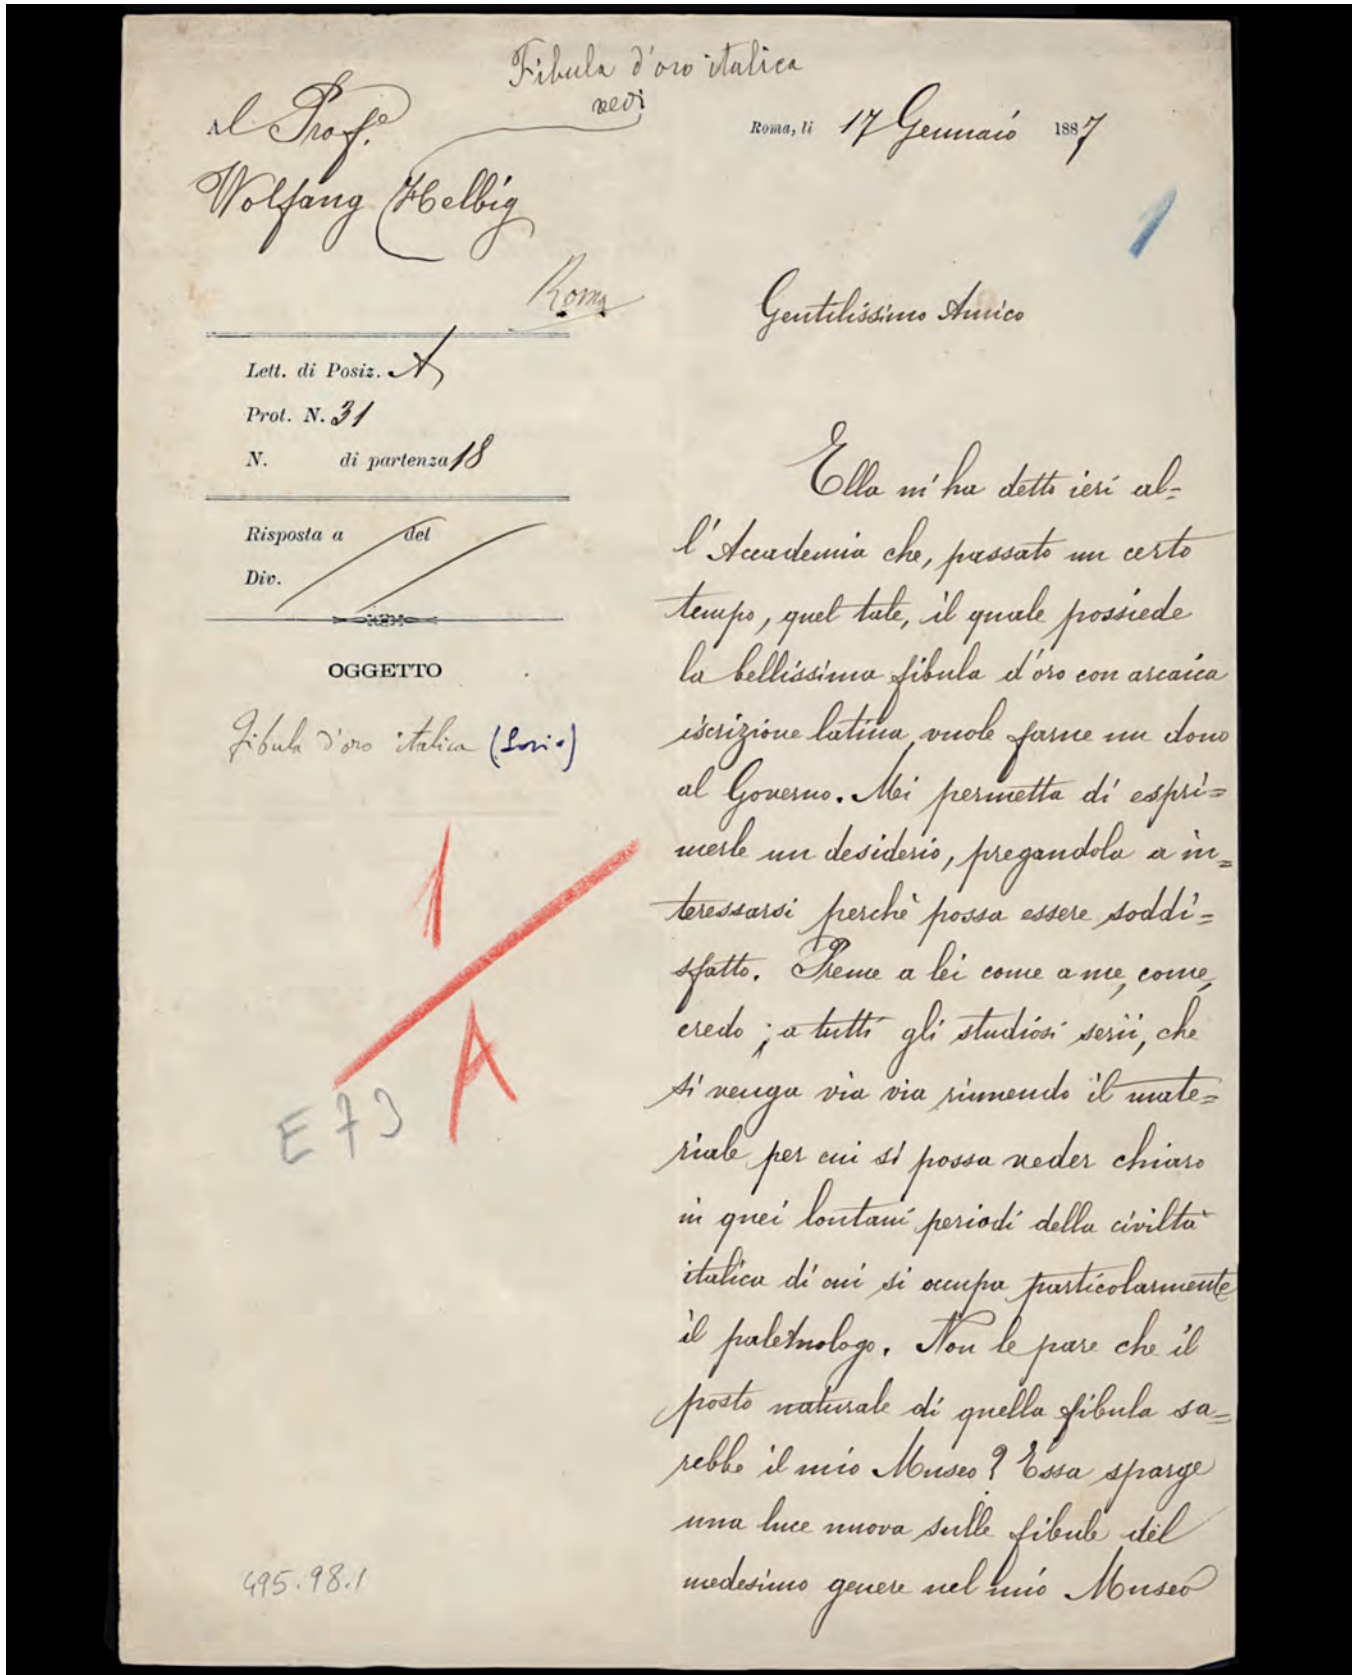 Fibula d'oro italica
vedi
Al Prof.e
Wolfang Helbig
Roma
Roma, li 17 Gennaio 1887
1
Lett. di Posiz. A
Prot. N. 31
N. di partenza 18
Risposta a del
Div.
OGGETTO
Fibula d'oro italica
1
A
E 73
495.98.1
Gentilissimo Amico
Ella m'ha detto ieri al=
l'Accademia che, passato un certo
tempo, quel tale, il quale possiede
la bellissima fibula d'oro con arcaica
iscrizione latina, vuole farne un dono
al Governo. Mi permetta di espri=
merle un desiderio, pregandola a in=
teressarsi perchè possa essere soddi=
sfatto. Preme a lei come a me, come,
credo, a tutti gli studiosi serii, che
si venga via via riunendo il mate=
riale per cui si possa veder chiaro
in quei lontani periodi della civiltà
italica di cui si occupa particolarmente
il paletnologo. Non le pare che il
posto naturale di quella fibula sa=
rebbe il mio Museo? Essa sparge
una luce nuova sulle fibule del
medesimo genere nel mio Museo